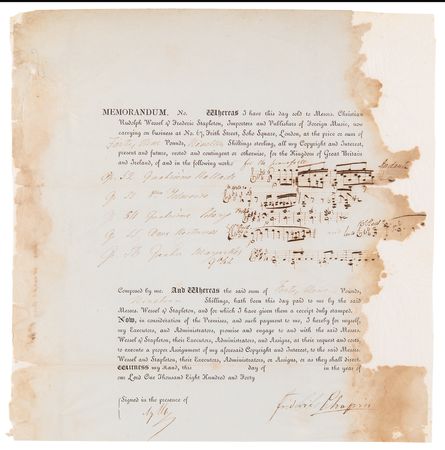 MEMORANDUM, No. Whereas I have this day sold to Messrs. Christian
Rudolph Wessel & Frederic Stapleton, Importers and Publishers of Foreign Music, now
carrying on business at No. 67, Frith Street, Soho Square, London, at the price or sum of
Pounds, Shillings sterling, all my Copyright and Interest,
present and future, vested and contingent or otherwise, for the Kingdom of Great Britain
and Ireland, of and in the following works: for the pianoforte
Op. 52
Op.
Op.
Op. 55 Deux Nocturnes
Op. 56
Composed by me. And Whereas the said sum of Pounds,
Shillings, hath been this day paid to me by the said
Messrs. Wessel & Stapleton, and for which I have given them a receipt duly stamped.
Now, in consideration of the Premises, and such payment to me, I hereby for myself,
my Executors, and Administrators, promise and engage to and with the said Messrs.
Wessel & Stapleton, their Executors, Administrators, and Assigns, at their request and costs,
to execute a proper Assignment of my aforesaid Copyright and Interest, to the said Messrs.
Wessel and Stapleton, their Executors, Administrators, or Assigns, or as they shall direct
Witness my Hand, this day of in the year of
our Lord One Thousand Eight Hundred and Forty
(Signed in the presence of
Frédéric Chopin